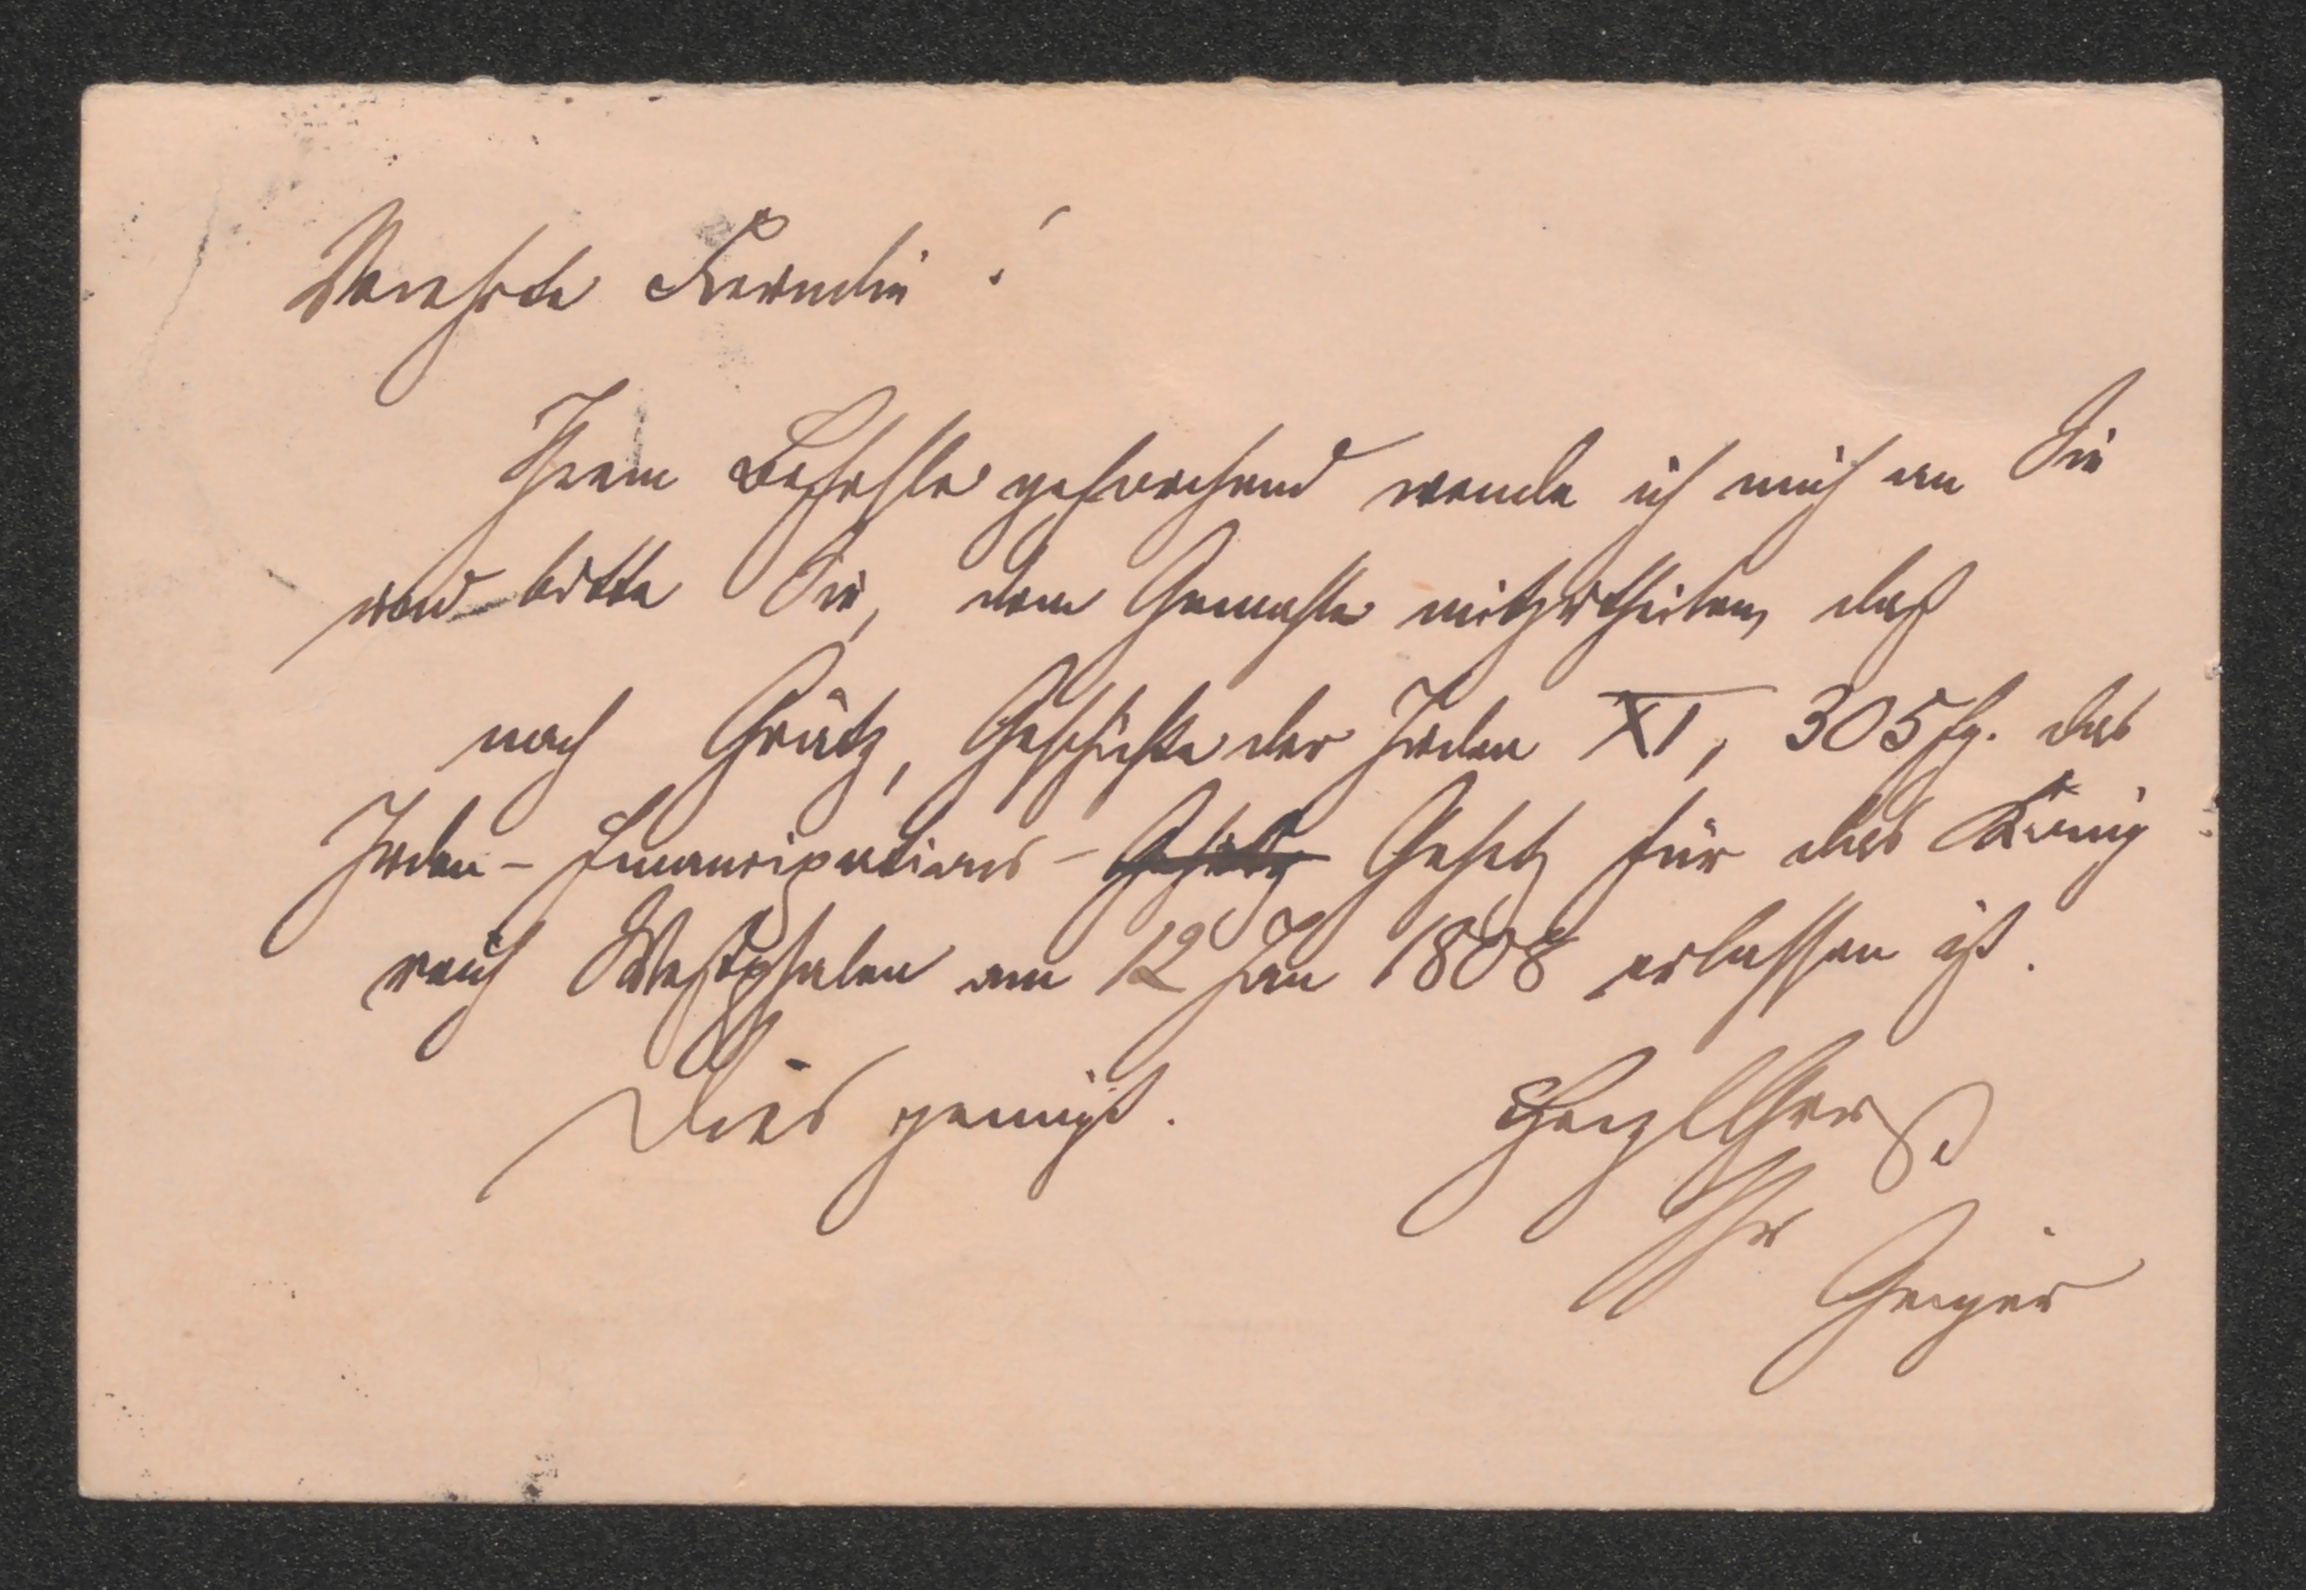 Verehrte Freundin!
Ihrem Befehle gehorchend wende ich mich an Sie
und bitte Sie, dem Gemahle mitzutheilen, daß
nach Grätz, Geschichte der Juden XI, 305 fg. das
Juden-Emancipations- Gesetz für das König
reich Westphalen am 12 Jan 1808 erlassen ist.
Dies genügt.
Ihr
Geiger